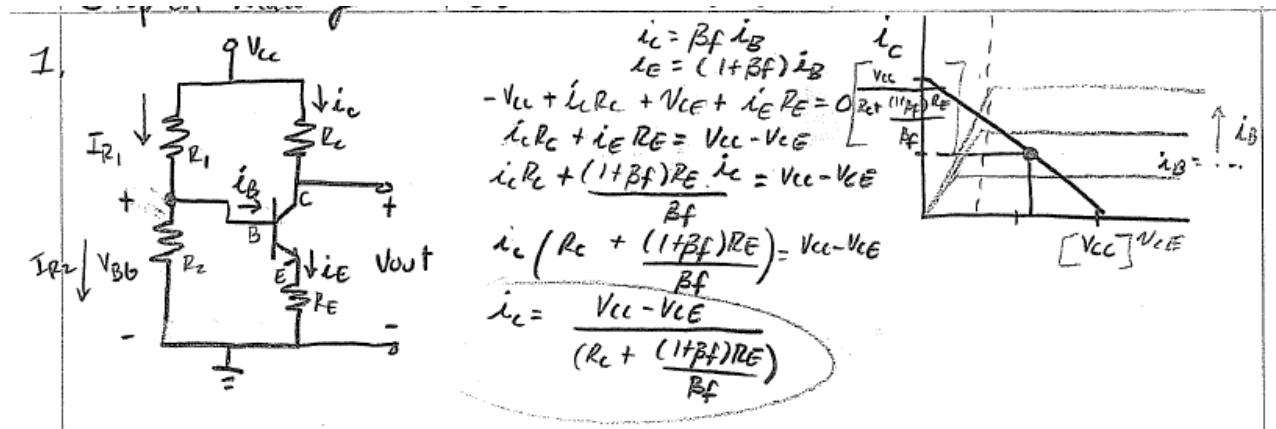 1.
Vcc
IR1
R1
ic
Rc
iB
C
+
+
B
IR2
VBb
R2
E
iE
Vout
RE
-
-
ic = βf iB
iE = (1+βf) iB
-Vcc + ic Rc + VCE + iE RE = 0
ic Rc + iE RE = Vcc - VCE
ic Rc + (1+βf)RE/βf · ic = Vcc - VCE
ic ( Rc + (1+βf)RE/βf ) = Vcc - VCE
ic = Vcc - VCE / (Rc + (1+βf)RE/βf)
ic
[ Vcc / Rc + (1+βf)RE/βf ]
iB
iB = ...
[Vcc]
VCE